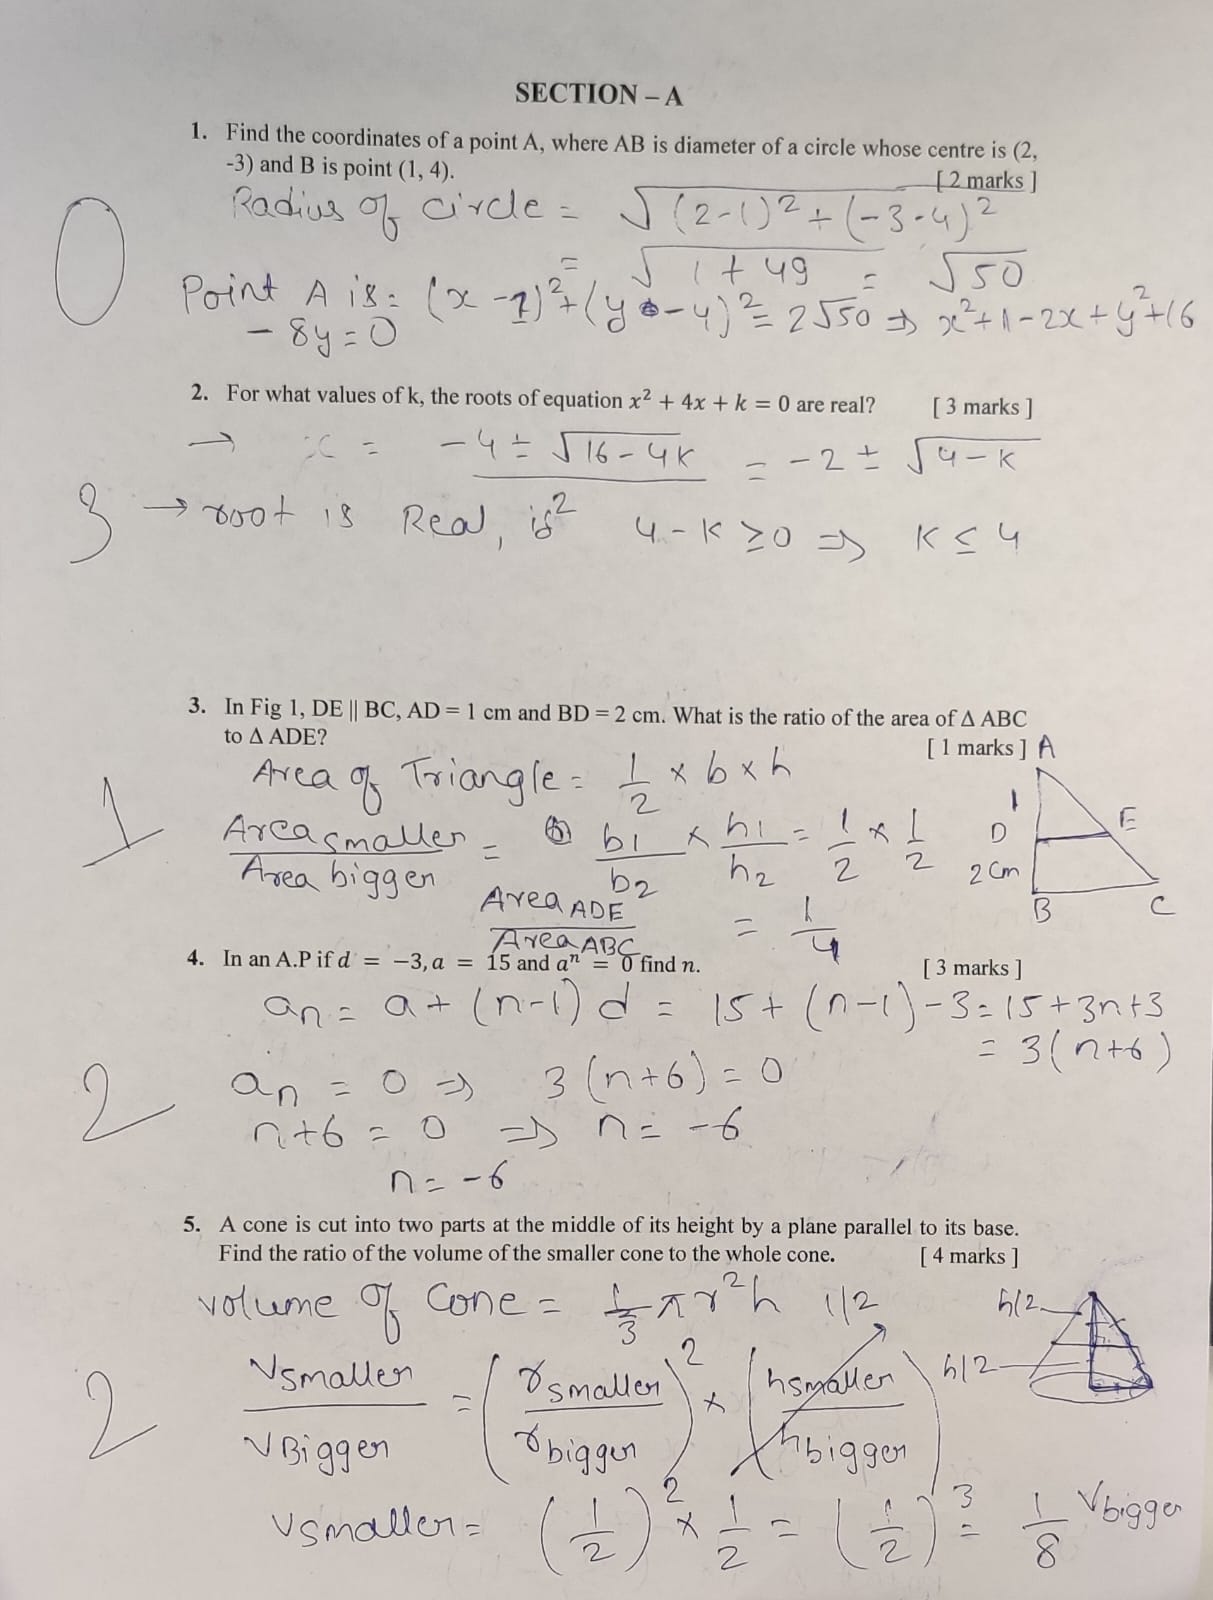 SECTION – A
1. Find the coordinates of a point A, where AB is diameter of a circle whose centre is (2,
-3) and B is point (1, 4). [2 marks]
Radius of circle = √(2-1)² + (-3-4)²
0
= √1 + 49 = √50
Point A is: (x - 1)² + (y - 4)² = 2√50 ⇒ x² + 1 - 2x + y² + 16
- 8y = 0
2. For what values of k, the roots of equation x² + 4x + k = 0 are real? [3 marks]
→ x = -4 ± √16 - 4K / 2 = -2 ± √4 - K
3 → root is Real, if 4 - K ≥ 0 ⇒ K ≤ 4
3. In Fig 1, DE || BC, AD = 1 cm and BD = 2 cm. What is the ratio of the area of Δ ABC
to Δ ADE? [1 marks]
A
Area of Triangle = 1/2 × b × h
1
Area smaller / Area bigger = b1/b2 × h1/h2 = 1/2 × 1/2
1
D E
2 cm
B C
Area ADE / Area ABC = 1/4
4. In an A.P if d = −3, a = 15 and aⁿ = 0 find n. [3 marks]
an = a + (n-1) d = 15 + (n-1) - 3 = 15 + 3n + 3
= 3(n+6)
2
an = 0 ⇒ 3(n+6) = 0
n+6 = 0 ⇒ n = -6
n = -6
5. A cone is cut into two parts at the middle of its height by a plane parallel to its base.
Find the ratio of the volume of the smaller cone to the whole cone. [4 marks]
volume of Cone = 1/3 π r² h 1/2
h/2
h/2
2
Vsmaller / VBigger = (rsmaller / rbigger)² × (hsmaller / hbigger)
Vsmaller = (1/2)² × 1/2 = (1/2)³ = 1/8 Vbigger